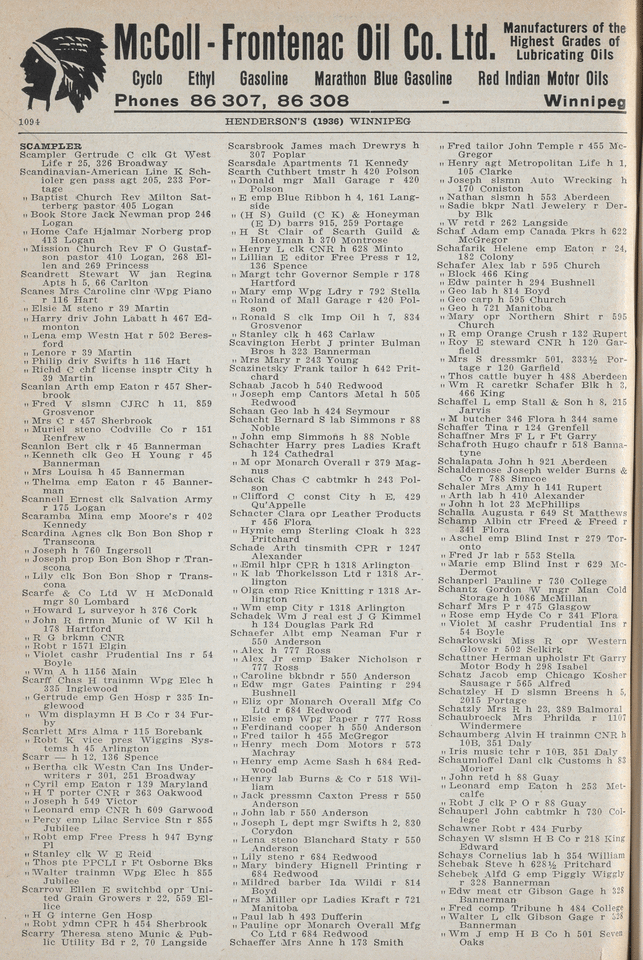 McColl-Frontenac Oil Co. Ltd.
Manufacturers of the
Highest Grades of
Lubricating Oils
Cyclo Ethyl Gasoline Marathon Blue Gasoline Red Indian Motor Oils
Phones 86 307, 86 308 - Winnipeg
1094 HENDERSON'S (1936) WINNIPEG
SCAMPLER
Scampler Gertrude C clk Gt West
Life r 25, 326 Broadway
Scandinavian-American Line K Sch-
ioler gen pass agt 205, 233 Por-
tage
" Baptist Church Rev Milton Sat-
terberg pastor 405 Logan
" Book Store Jack Newman prop 246
Logan
" Home Cafe Hjalmar Norberg prop
413 Logan
" Mission Church Rev F O Gustaf-
son pastor 410 Logan, 268 El-
len and 269 Princess
Scandrett Stewart W jan Regina
Apts h 5, 66 Carlton
Scanes Mrs Caroline clnr Wpg Piano
r 116 Hart
" Elsie M steno r 39 Martin
" Harry driv John Labatt h 467 Ed-
monton
" Lena emp Westn Hat r 502 Beres-
ford
" Lenore r 39 Martin
" Philip driv Swifts h 116 Hart
" Richd C chf license insptr City h
39 Martin
Scanlan Arth emp Eaton r 457 Sher-
brook
" Fred V slsmn CJRC h 11, 859
Grosvenor
" Mrs C r 457 Sherbrook
" Muriel steno Codville Co r 151
Renfrew
Scanlon Bert clk r 45 Bannerman
" Kenneth clk Geo H Young r 45
Bannerman
" Mrs Louisa h 45 Bannerman
" Thelma emp Eaton r 45 Banner-
man
Scannell Ernest clk Salvation Army
r 175 Logan
Scaramba Mina emp Moore's r 402
Kennedy
Scardina Agnes clk Bon Bon Shop r
Transcona
" Joseph h 760 Ingersoll
" Joseph prop Bon Bon Shop r Tran-
scona
" Lily clk Bon Bon Shop r Trans-
cona
Scarfe & Co Ltd W H McDonald
mgr 80 Lombard
" Howard L surveyor h 376 Cork
" John R firmn Munic of W Kil h
178 Hartford
" R G brkmn CNR
" Robt r 1571 Elgin
" Violet cashr Prudential Ins r 54
Boyle
" Wm A h 1156 Main
Scarff Chas H trainmn Wpg Elec h
335 Inglewood
" Gertrude emp Gen Hosp r 335 In-
glewood
" Wm displaymn H B Co r 34 Fur-
by
Scarlett Mrs Alma r 115 Borebank
" Robt K vice pres Wiggins Sys-
tems h 45 Arlington
Scarr — h 12, 136 Spence
" Bertha clk Westn Can Ins Under-
writers r 301, 251 Broadway
" Cyril emp Eaton r 139 Maryland
" H T porter CNR r 363 Oakwood
" Joseph h 549 Victor
" Leonard emp CNR h 609 Garwood
" Percy emp Lilac Service Stn r 855
Jubilee
" Robt emp Free Press h 947 Byng
Pl
" Stanley clk W E Reid
" Thos pte PPCLI r Ft Osborne Bks
" Walter trainmn Wpg Elec h 855
Jubilee
Scarrow Ellen E switchbd opr Uni-
ted Grain Growers r 22, 559 El-
lice
" H G interne Gen Hosp
" Robt ydmn CPR h 454 Sherbrook
Scarry Theresa steno Munic & Pub-
lic Utility Bd r 2, 70 Langside
Scarsbrook James mach Drewrys h
307 Poplar
Scarsdale Apartments 71 Kennedy
Scarth Cuthbert tmstr h 420 Polson
" Donald mgr Mall Garage r 420
Polson
" E emp Blue Ribbon h 4, 161 Lang-
side
" (H S) Guild (C K) & Honeyman
(E D) barrs 915, 259 Portage
" H St Clair of Scarth Guild &
Honeyman h 370 Montrose
" Henry L clk CNR h 628 Minto
" Lillian E editor Free Press r 12,
136 Spence
" Margt tchr Governor Semple r 178
Hartford
" Mary emp Wpg Ldry r 792 Stella
" Roland of Mall Garage r 420 Pol-
son
" Ronald S clk Imp Oil h 7, 834
Grosvenor
" Stanley clk h 463 Carlaw
Scavington Herbt J printer Bulman
Bros h 323 Bannerman
" Mrs Mary r 243 Young
Scazinetsky Frank tailor h 642 Prit-
chard
Schaab Jacob h 540 Redwood
" Joseph emp Cantors Metal h 505
Redwood
Schaan Geo lab h 424 Seymour
Schacht Bernard S lab Simmons r 88
Noble
" John emp Simmons h 88 Noble
Schachter Harry pres Ladies Kraft
h 124 Cathedral
" M opr Monarch Overall r 379 Mag-
nus
Schack Chas C cabtmkr h 243 Pol-
son
" Clifford C const City h E, 429
Qu'Appelle
Schacter Clara opr Leather Products
r 456 Flora
" Hymie emp Sterling Cloak h 323
Pritchard
Schade Arth tinsmth CPR r 1247
Alexander
" Emil hlpr CPR h 1318 Arlington
" K lab Thorkelsson Ltd r 1318 Ar-
lington
" Olga emp Rice Knitting r 1318 Ar-
lington
" Wm emp City r 1318 Arlington
Schadek Wm J real est J G Kimmel
h 134 Douglas Park Rd
Schaefer Albt emp Neaman Fur r
550 Anderson
" Alex h 777 Ross
" Alex Jr emp Baker Nicholson r
777 Ross
" Caroline bkbndr r 550 Anderson
" Edw mgr Gates Painting r 294
Bushnell
" Eliz opr Monarch Overall Mfg Co
Ltd r 684 Redwood
" Elsie emp Wpg Paper r 777 Ross
" Ferdinand cooper h 550 Anderson
" Fred tailor h 455 McGregor
" Henry mech Dom Motors r 573
Machray
" Henry emp Acme Sash h 684 Red-
wood
" Henry lab Burns & Co r 518 Wil-
liam
" Jack pressmn Caxton Press r 550
Anderson
" John lab r 550 Anderson
" Joseph L dept mgr Swifts h 2, 830
Corydon
" Lena steno Blanchard Staty r 550
Anderson
" Lily steno r 684 Redwood
" Mary bindery Hignell Printing r
684 Redwood
" Mildred barber Ida Wildi r 814
Boyd
" Mrs Miller opr Ladies Kraft r 721
Manitoba
" Paul lab h 493 Dufferin
" Pauline opr Monarch Overall Mfg
Co Ltd r 684 Redwood
Schaeffer Mrs Anne h 173 Smith
" Fred tailor John Temple r 455 Mc-
Gregor
" Henry agt Metropolitan Life h 1,
105 Clarke
" Joseph slsmn Auto Wrecking h
170 Coniston
" Nathan slsmn h 553 Aberdeen
" Sadie bkpr Natl Jewelery r Der-
by Blk
" W retd r 262 Langside
Schaf Adam emp Canada Pkrs h 622
McGregor
Schafarik Helene emp Eaton r 24,
182 Colony
Schafer Alex lab r 595 Church
" Block 466 King
" Edw painter h 294 Bushnell
" Geo lab h 814 Boyd
" Geo carp h 595 Church
" Geo h 721 Manitoba
" Mary opr Northern Shirt r 595
Church
" R emp Orange Crush r 132 Rupert
" Roy E steward CNR h 120 Gar-
field
" Mrs S dressmkr 501, 333½ Por-
tage r 120 Garfield
" Thos cattle buyer h 488 Aberdeen
" Wm R caretkr Schafer Blk h 3,
466 King
Schaffel L emp Stall & Son h 8, 215
Jarvis
" M butcher 346 Flora h 344 same
Schaffer Tina r 124 Grenfell
Schaffner Mrs F L r Ft Garry
Schafroth Hugo chaufr r 518 Banna-
tyne
Schalapata John h 921 Aberdeen
Schaldemose Joseph welder Burns &
Co r 788 Simcoe
Schaler Mrs Amy h 141 Rupert
" Arth lab h 410 Alexander
" John h lot 23 McPhillips
Schalla Augusta r 649 St Matthews
Schamp Albin ctr Freed & Freed r
341 Flora
" Aschel emp Blind Inst r 279 Tor-
onto
" Fred Jr lab r 553 Stella
" Marie emp Blind Inst r 629 Mc-
Dermot
Schanperl Pauline r 730 College
Schantz Gordon W mgr Man Cold
Storage h 1086 McMillan
Scharf Mrs P r 475 Glasgow
" Rose emp Hyde Co r 341 Flora
" Violet M cashr Prudential Ins r
54 Boyle
Scharkowski Miss R opr Western
Glove r 502 Selkirk
Schattner Herman upholstr Ft Garry
Motor Body h 298 Isabel
Schatz Jacob emp Chicago Kosher
Sausage r 565 Alfred
Schatzley H D slsmn Breens h 5,
2015 Portage
Schatzly Mrs R h 23, 389 Balmoral
Schaubroeck Mrs Phrilda r 1107
Windermere
Schaumberg Alvin H trainmn CNR h
10B, 351 Daly
" Iris music tchr r 10B, 351 Daly
Schaumloffel Danl clk Customs h 83
Morier
" John retd h 88 Guay
" Leonard emp Eaton h 253 Met-
calfe
" Robt J clk P O r 88 Guay
Schauperl John cabtmkr h 730 Col-
lege
Schawner Robt r 434 Furby
Schayen W slsmn H B Co r 218 King
Edward
Schays Cornelius lab h 354 William
Schebek Steve h 628½ Pritchard
Schebek Alfd G emp Piggly Wiggly
r 328 Bannerman
" Edw meat ctr Gibson Gage h 328
Bannerman
" Fred comp Tribune h 484 College
" Walter L clk Gibson Gage r 328
Bannerman
" Wm J emp H B Co h 501 Seven
Oaks